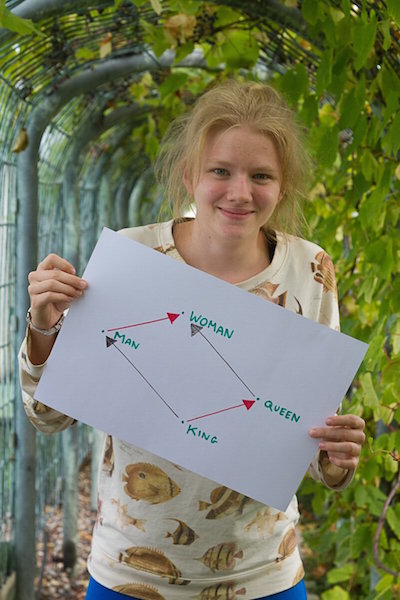 WOMAN
MAN
QUEEN
KING